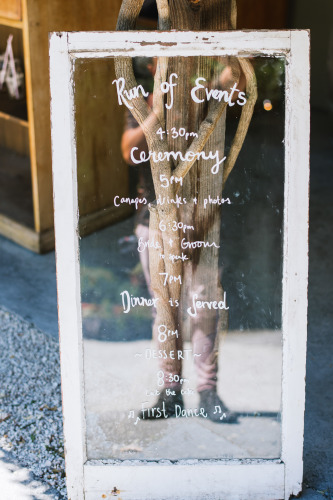 Run of Events
4:30pm
Ceremony
5PM
Canapes, drinks + photos
6:30pm
Bride + Groom
to speak
7PM
Dinner is served
8PM
~DESSERT~
8:30pm
Cut the
♫ First Dance ♫